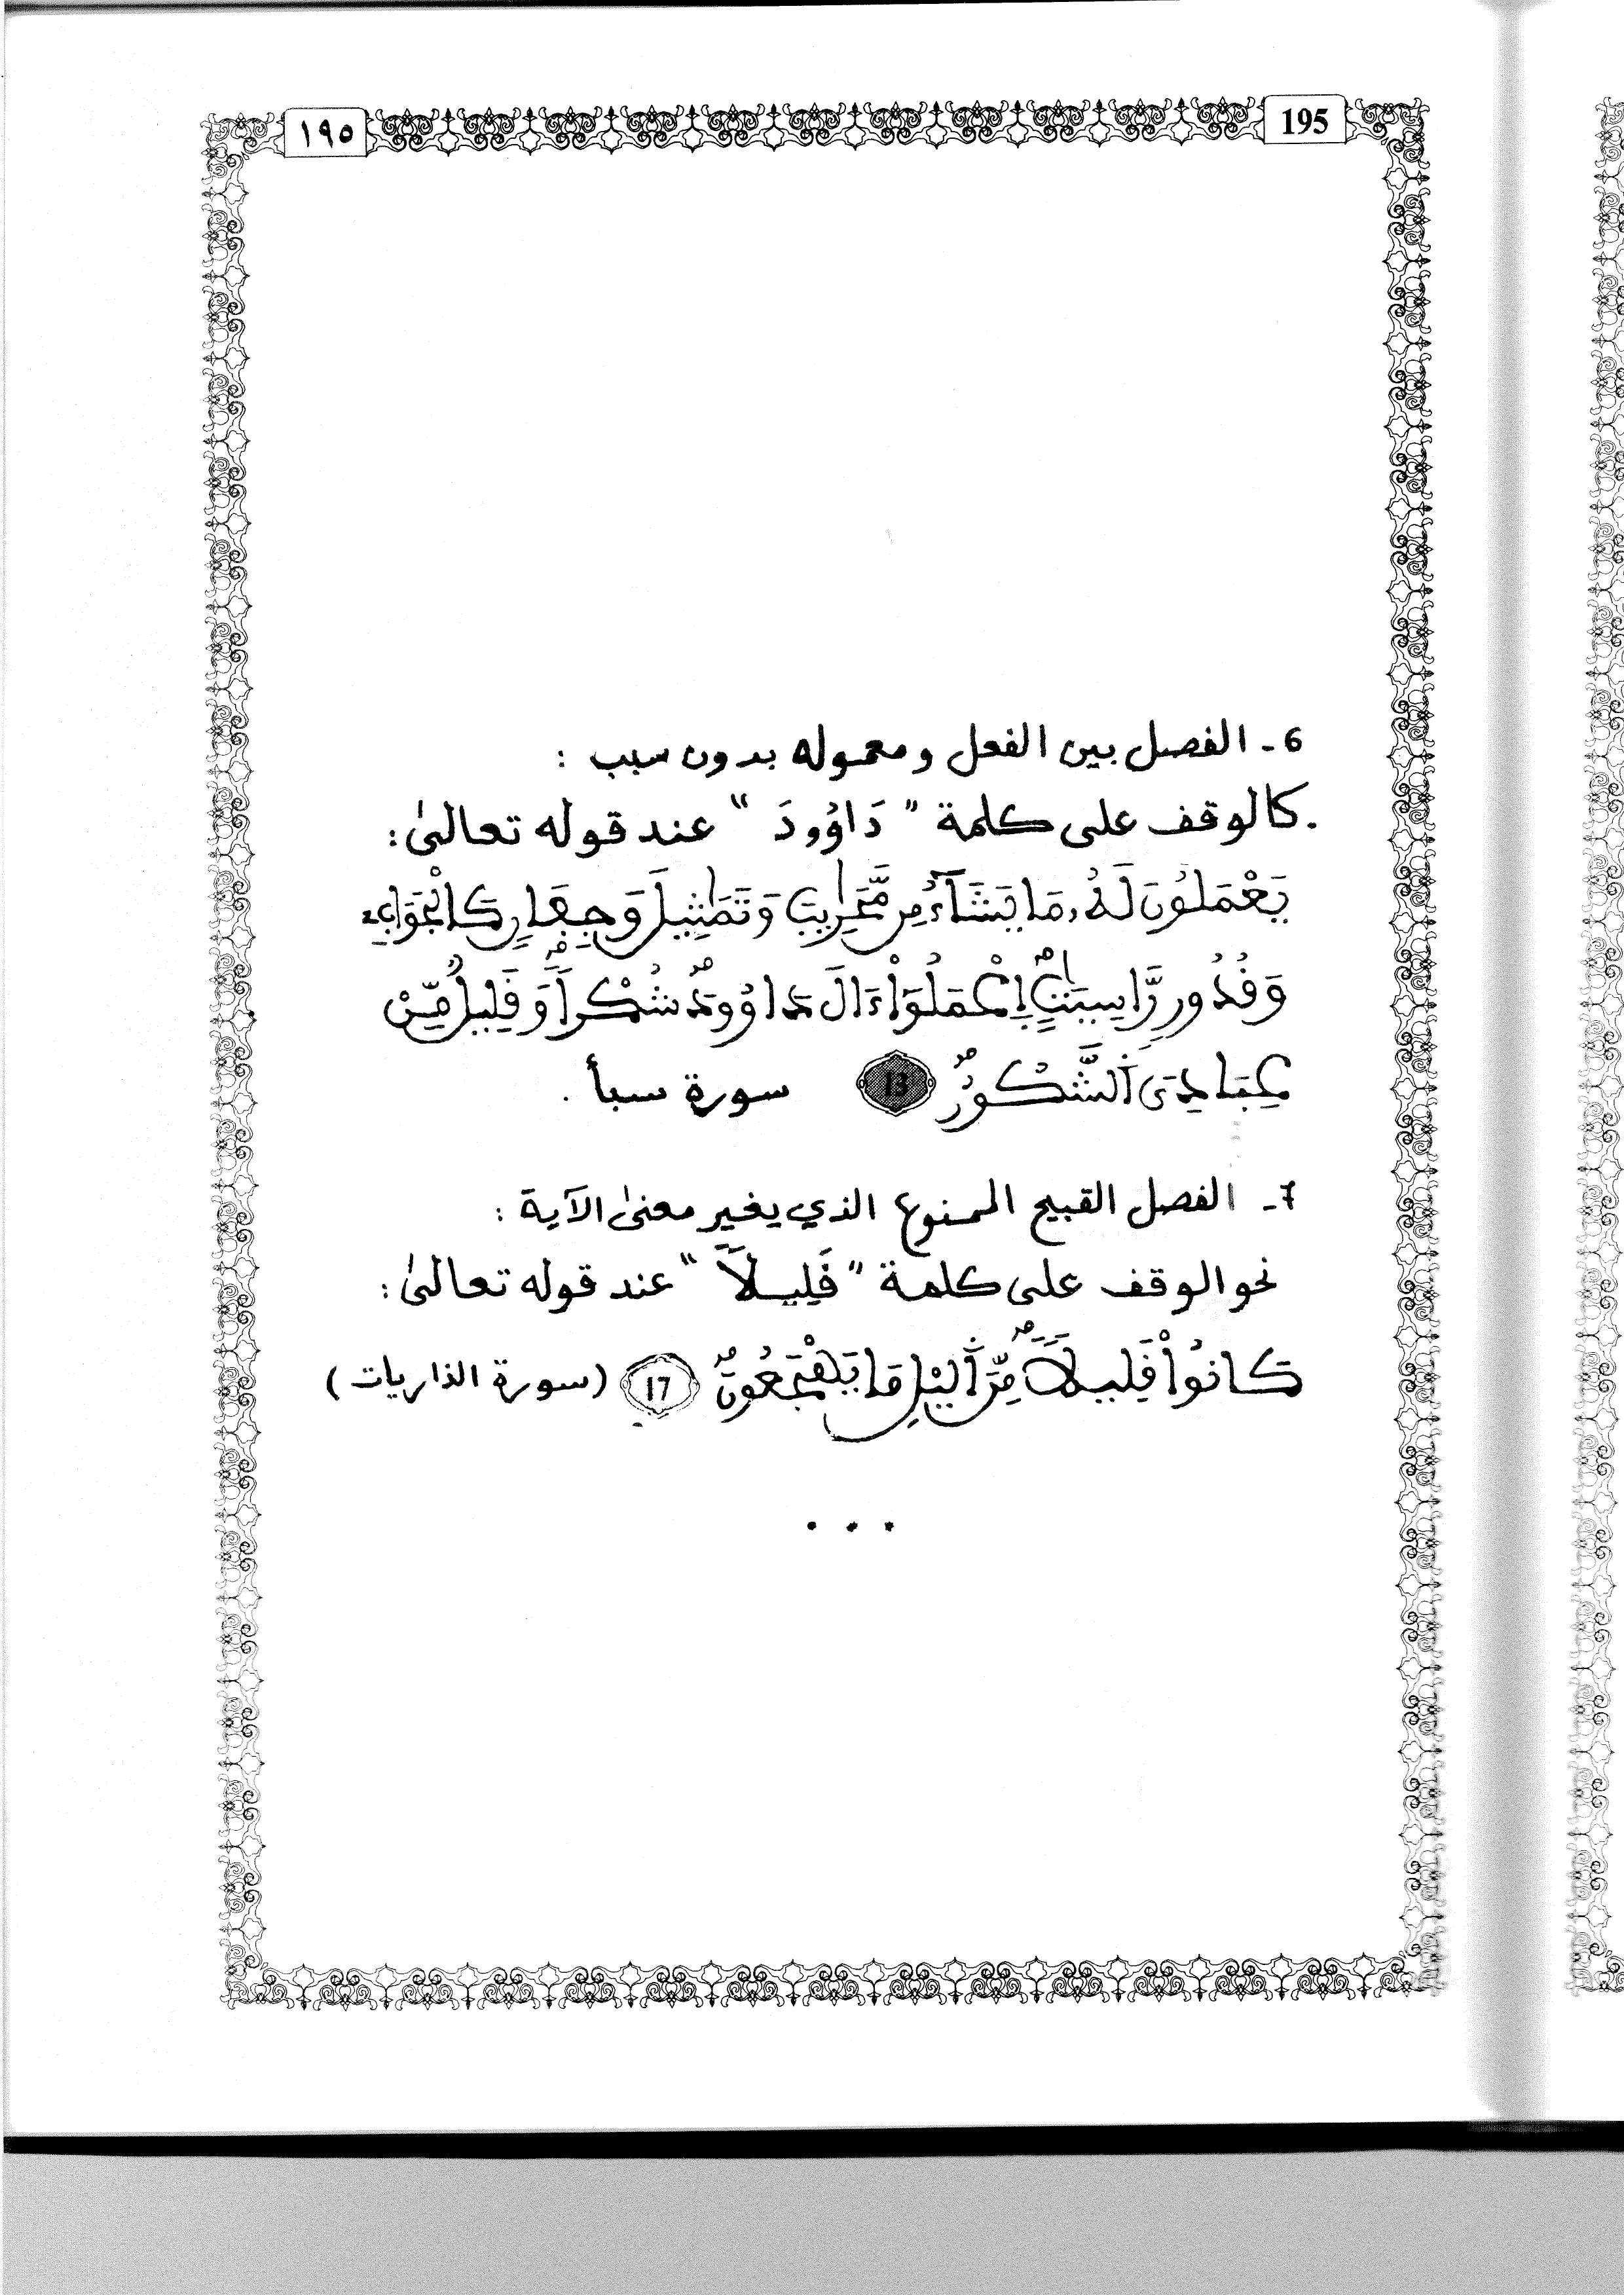 195
١٩٥
6 ـ الفصل بين الفعل ومعموله بدون سبب :
. كالوقف على كلمة " دَاوُودَ " عند قوله تعالىٰ :
يَعْمَلُونَ لَهُۥ مَا يَشَآءُ مِن مَّحَٰرِيبَ وَتَمَٰثِيلَ وَجِفَانٖ كَالْجَوَابِۦ
وَقُدُورٖ رَّاسِيَٰتٍۖ اِ۪عْمَلُوٓاْ ءَالَ دَاوُۥدَۖ شُكْراٗۖ وَقَلِيلٞ مِّنْ
عِبَادِيَ اَ۬لشَّكُورُۖ 13 سورة سبأ .
7 ـ الفصل القبيح الممنوع الذي يغير معنىٰ الآية :
نحو الوقف على كلمة " قَلِيلاً " عند قوله تعالىٰ :
كَانُواْ قَلِيلاٗۖ مِّنَ اَ۬ليْلِ مَا يَهْجَعُونَۖ 17 (سورة الذاريات)
...